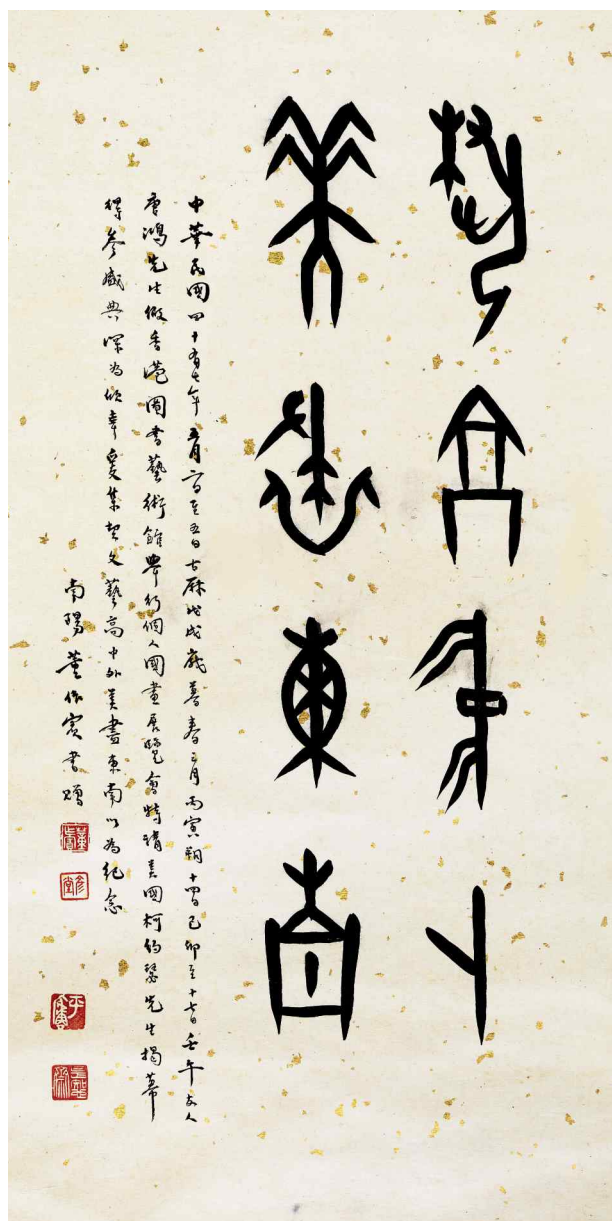 藝高中外
美盡東南
中華民國四十有七年五月二日至五日古曆戊戌歲暮春三月丙寅朔十四日己卯至十七日壬午友人
唐鴻先生假香港圖書藝術館舉行個人國畫展覽會特請美國柯約瑟先生揭幕
得參盛典深為欣幸爰集契文藝高中外美盡東南以為紀念
南陽董作賓書贈
彥堂